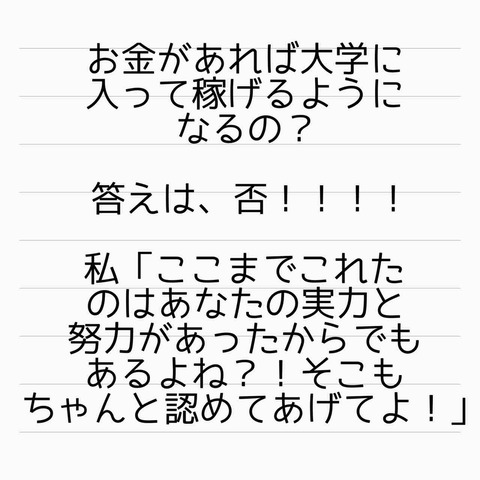 お金があれば大学に
入って稼げるように
なるの？
答えは、否！！！！
私「ここまでこれた
のはあなたの実力と
努力があったからでも
あるよね？！そこも
ちゃんと認めてあげてよ！」